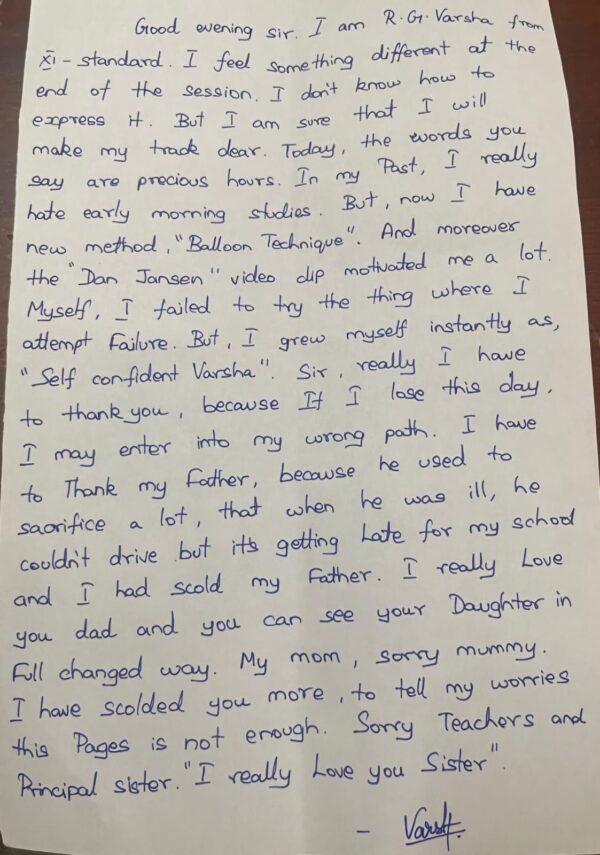 Good evening sir. I am R.G. Varsha from
XI - standard. I feel something different at the
end of the session. I don't know how to
express it. But I am sure that I will
make my track clear. Today, the words you
say are precious hours. In my Past, I really
hate early morning studies. But, now I have
new method, "Balloon Technique". And moreover
the "Dan Jansen" video clip motivated me a lot.
Myself, I failed to try the thing where I
attempt Failure. But, I grew myself instantly as,
"Self confident Varsha". Sir, really I have
to thank you, because If I lose this day,
I may enter into my wrong path. I have
to Thank my Father, because he used to
sacrifice a lot, that when he was ill, he
couldn't drive but it's getting Late for my school
and I had scold my Father. I really Love
you dad and you can see your Daughter in
Full changed way. My mom, sorry mummy.
I have scolded you more, to tell my worries
this Pages is not enough. Sorry Teachers and
Principal sister. "I really Love you Sister".
- Varsh.